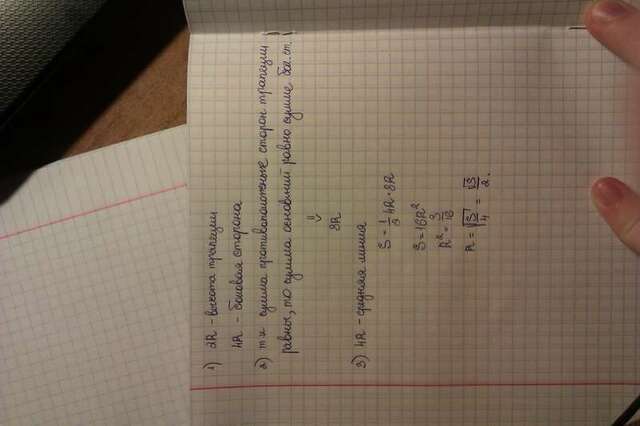 1) 2R - высота трапеции
4R - боковая сторона
2) т.к сумма противоположные сторон трапеции
равны, то сумма оснований равно сумме бок. ст.
⇓
8R
3) 4R - средняя линия
S = 1/2 4R · 8R
S = 16R²
R² = S/16
R = √S/4 = √S/2.